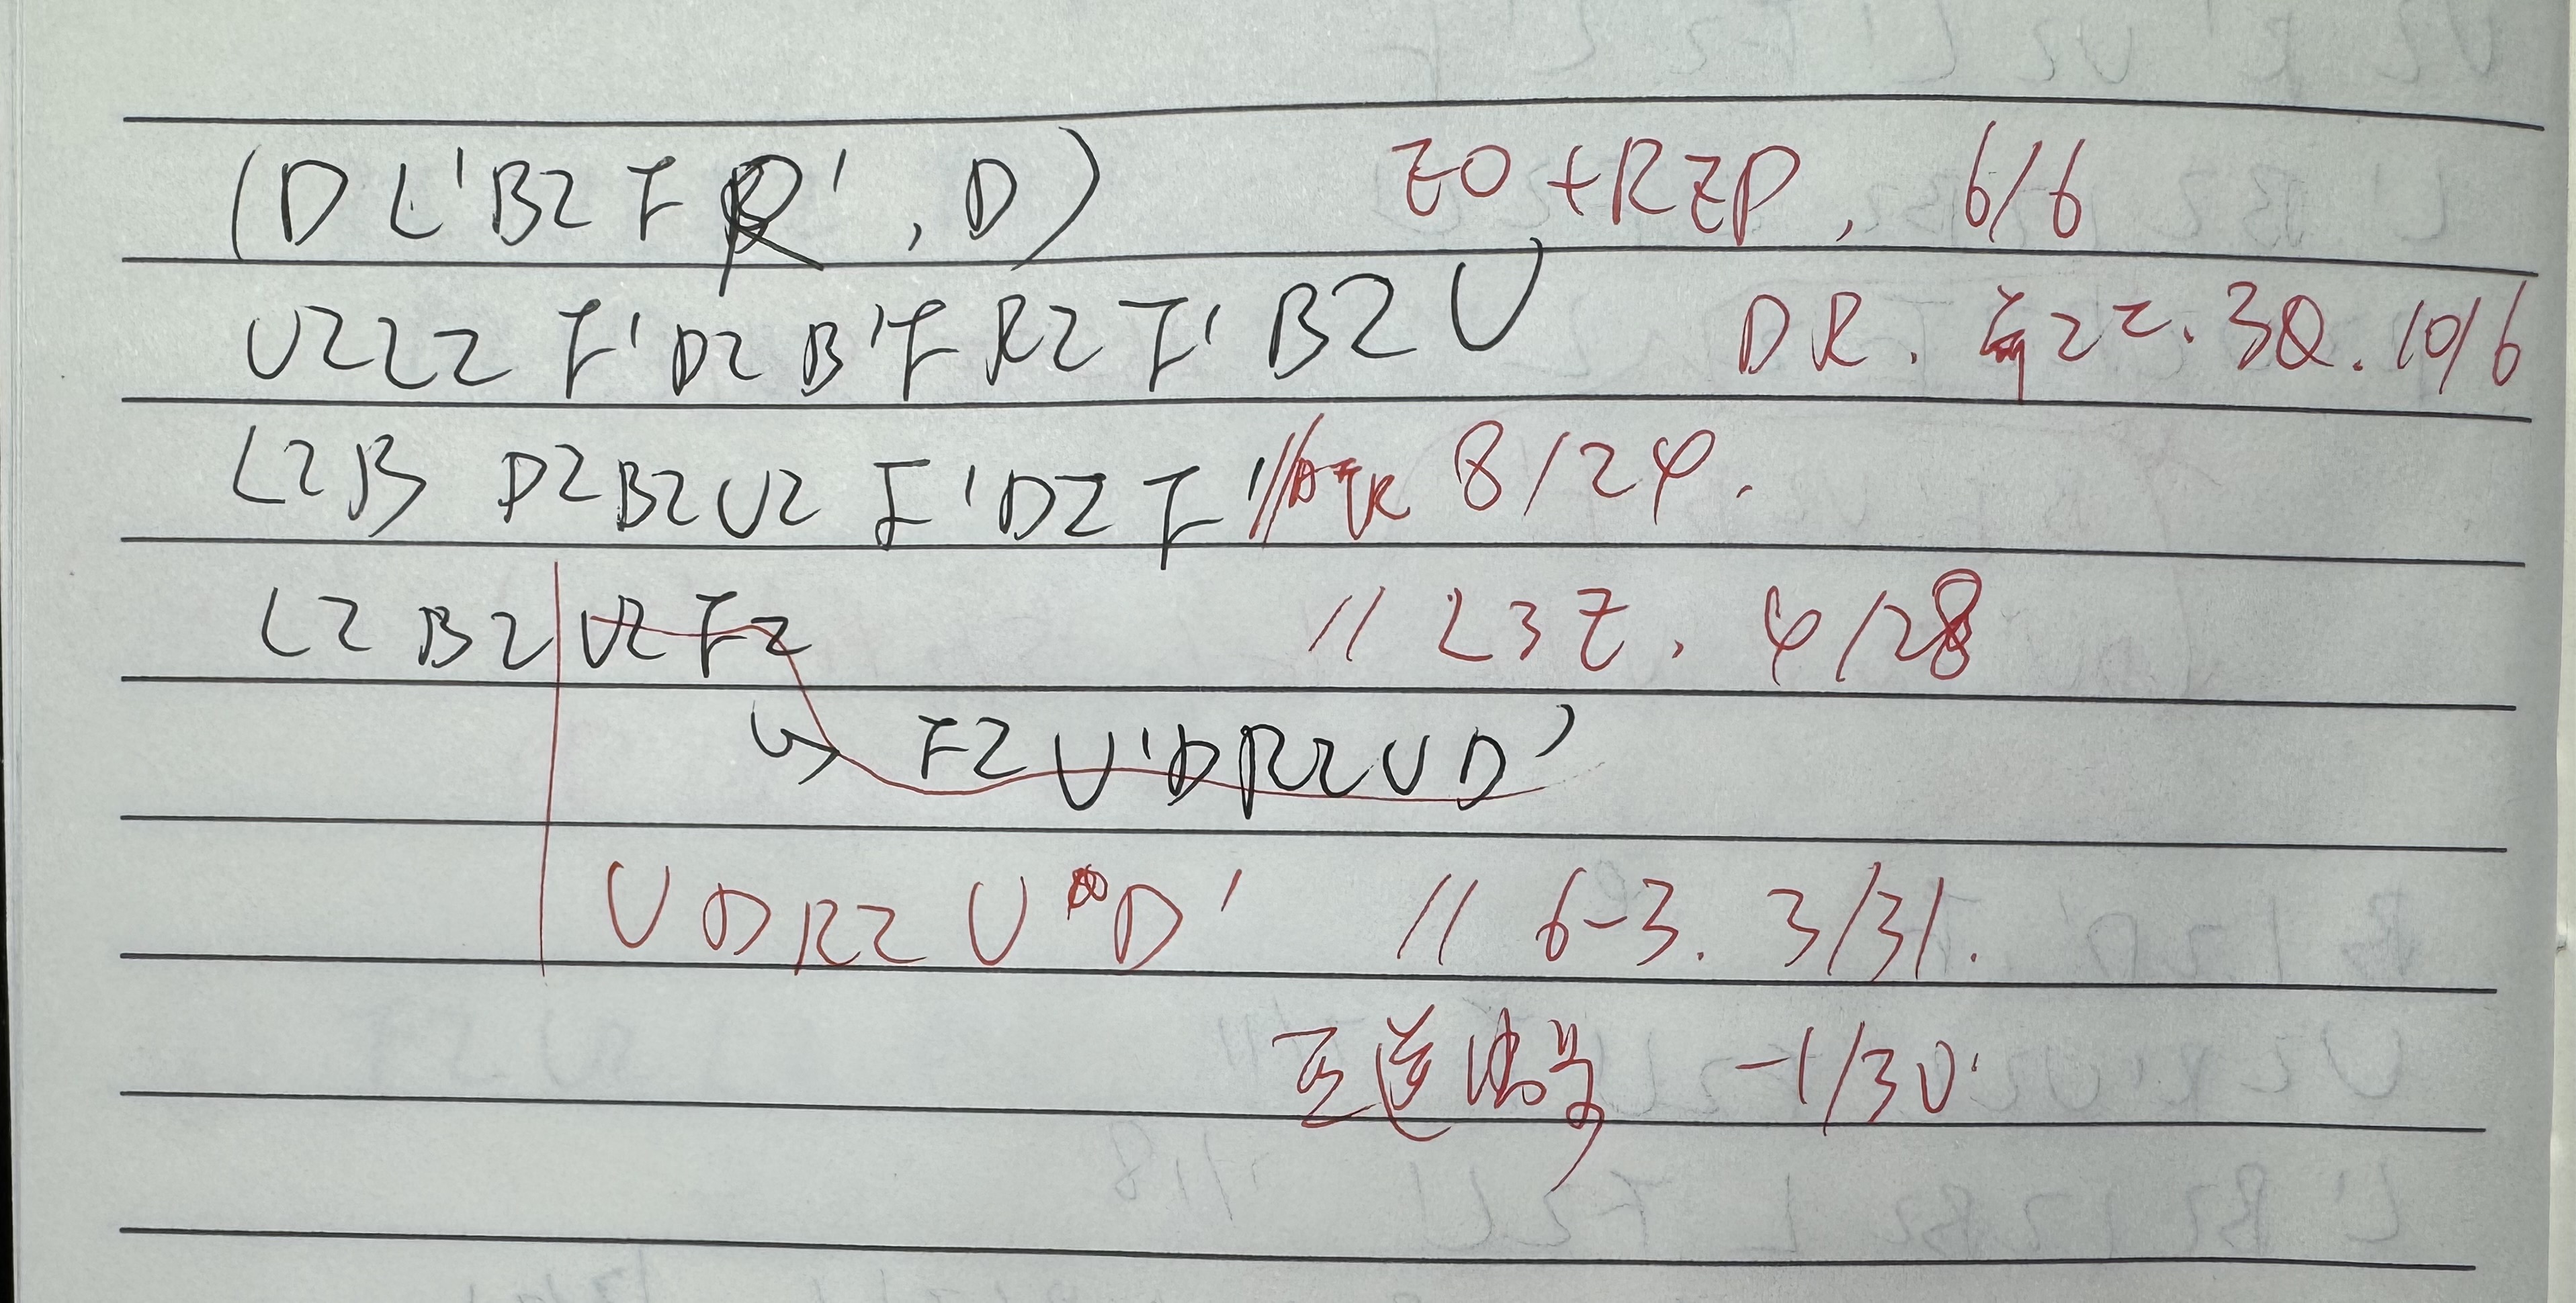 (D L'B2 F R', D) EO+RZP, 6/6
U2L2 F'D2 B'F R2 F' B2 U DR. 2c. 3Q. 10/6
L2B D2B2U2 F'D2 F' // 8/24.
L2 B2 U2 F2 // L3E. 4/28
↳ F2 U'D R2 U D'
U D R2 U D' // 6-3. 3/31.
-1/30.